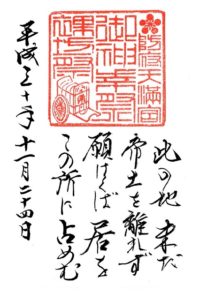 防府天満宮
御神幸祭
裸坊祭
此の地 未だ
帝土を離れず
願はくば 居を
この所に占めむ
平成三十年十一月二十四日